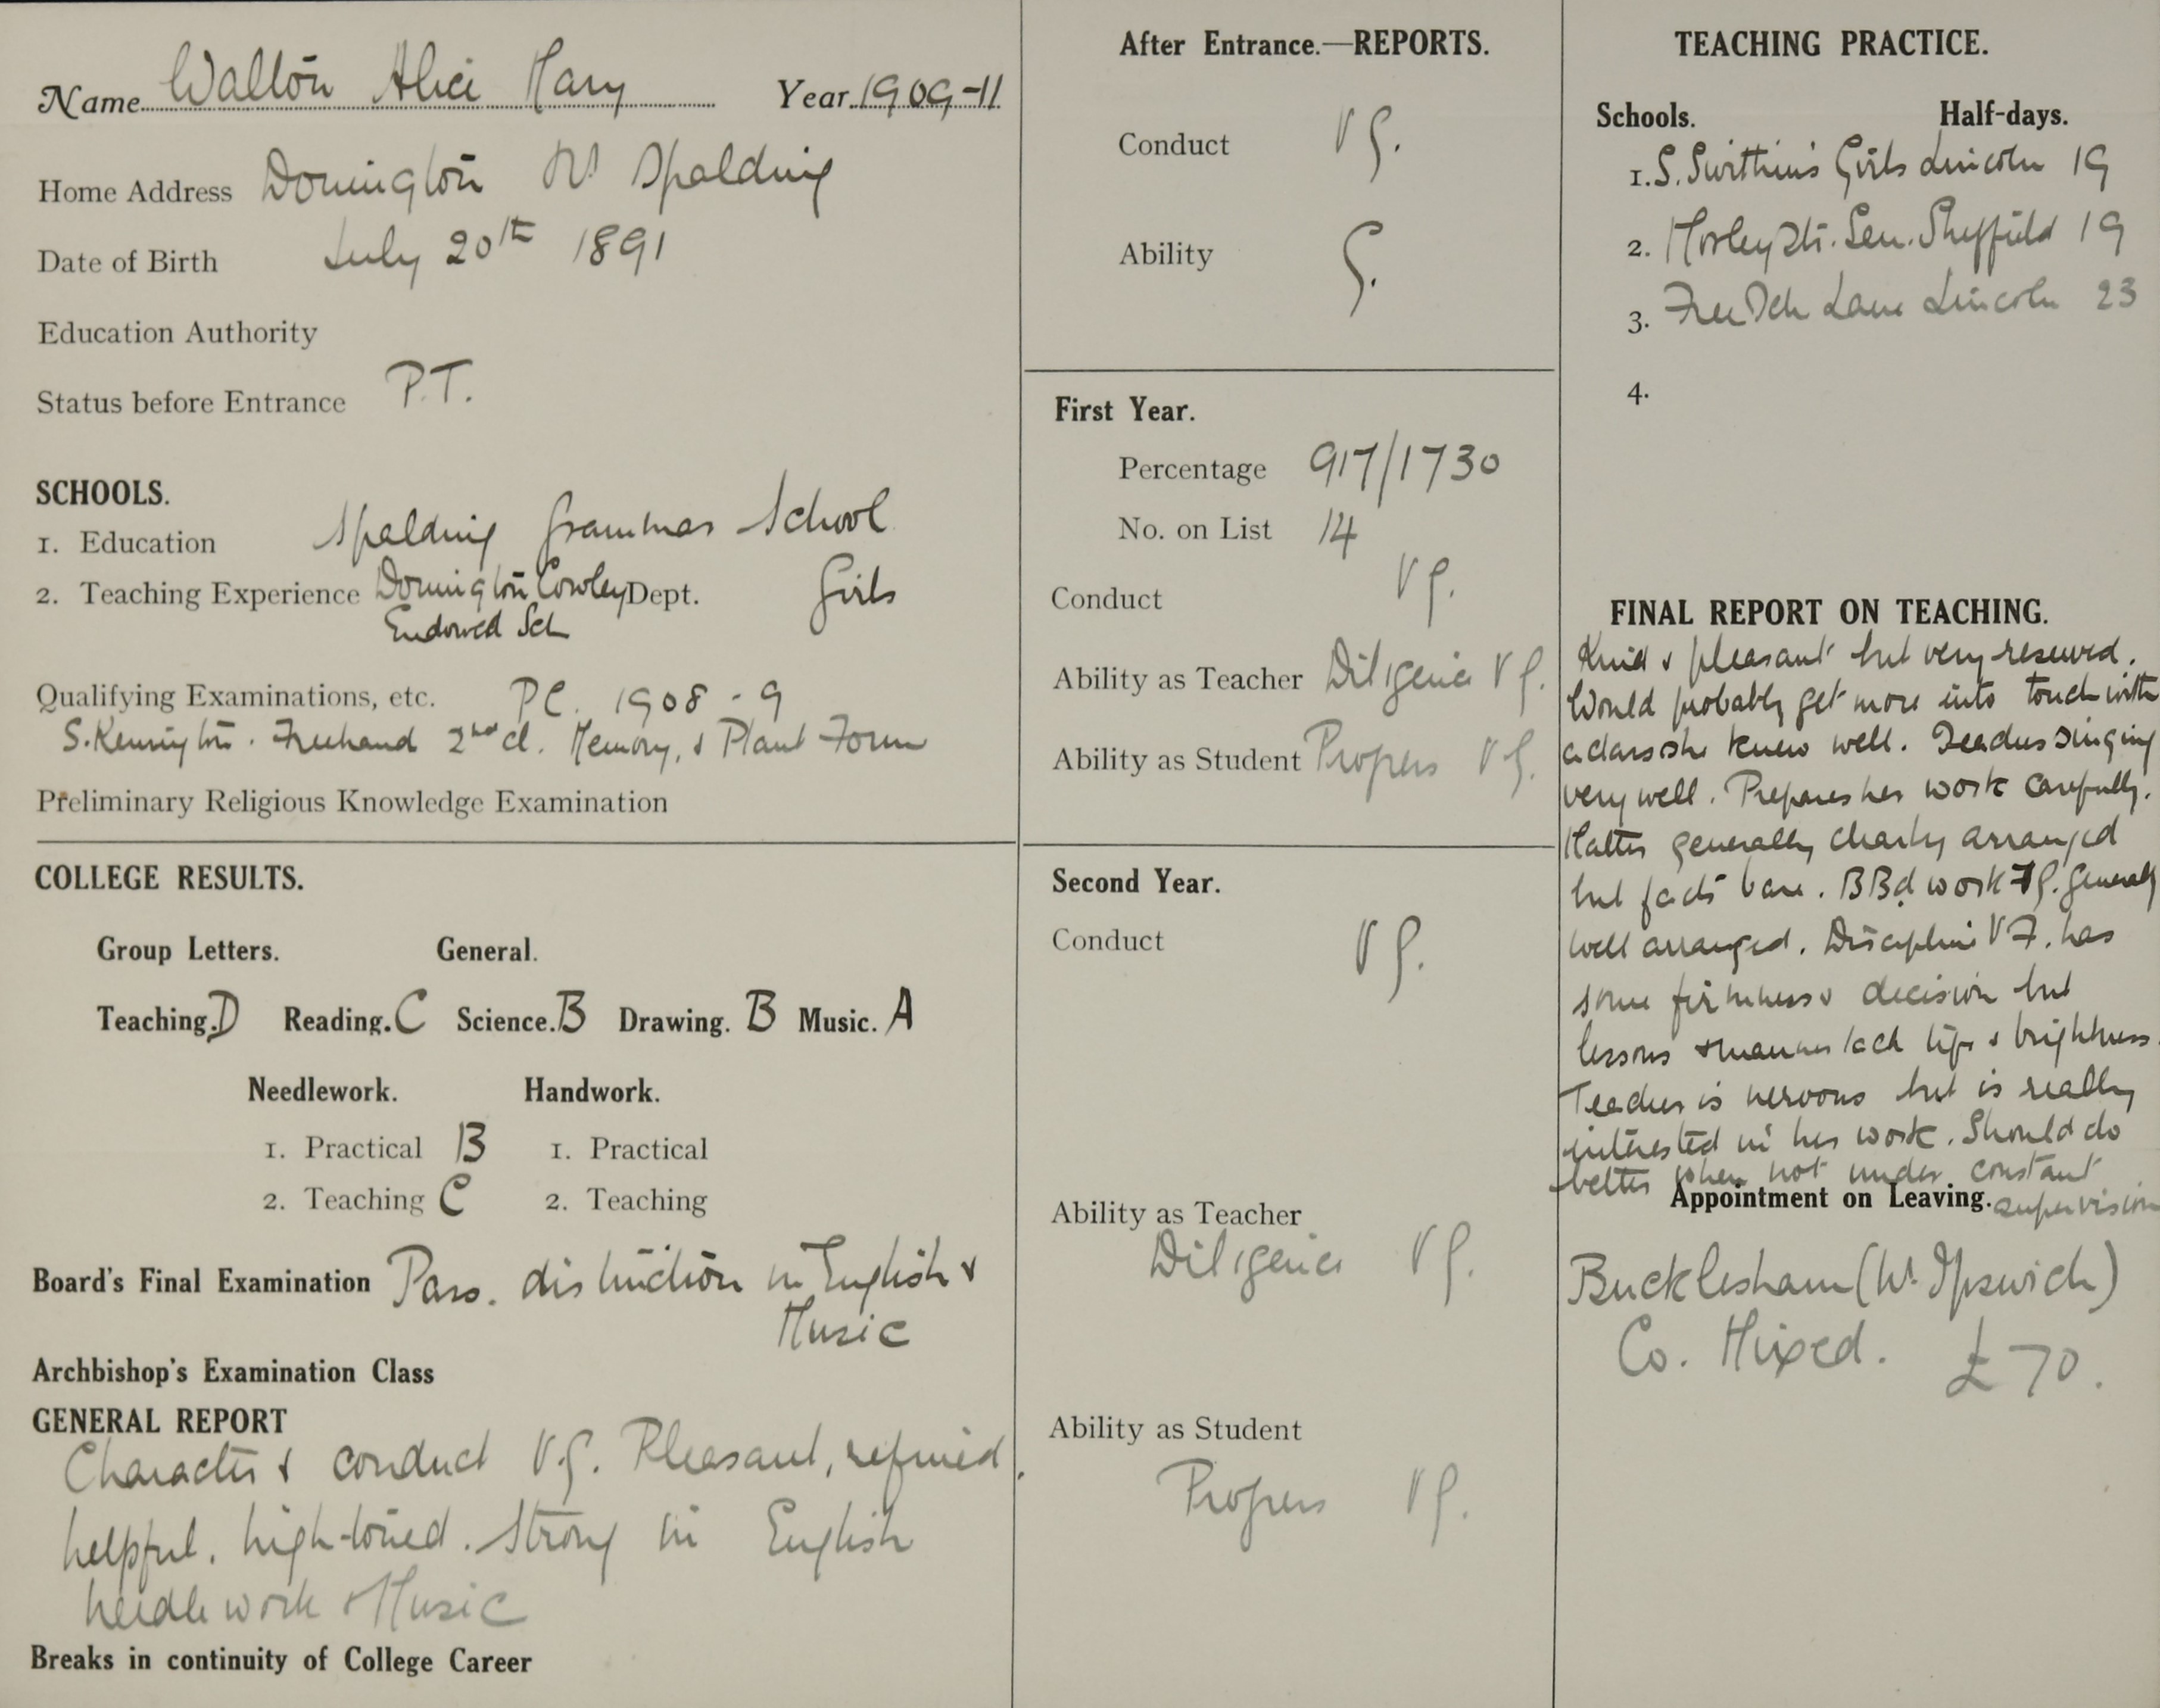 Name Walton Alice Mary Year 1909-11
Home Address Donington Nr Spalding
Date of Birth July 20th 1891
Education Authority
Status before Entrance P.T.
SCHOOLS.
1. Education Spalding Grammar School
2. Teaching Experience Donington Cowley Dept. Girls
Endowed Sch
Qualifying Examinations, etc. P.C. 1908-9
S. Kensington. Freehand 2nd cl. Memory, & Plant Form
Preliminary Religious Knowledge Examination
COLLEGE RESULTS.
Group Letters. General.
Teaching. D Reading. C Science. B Drawing. B Music. A
Needlework. Handwork.
1. Practical B 1. Practical
2. Teaching C 2. Teaching
Board's Final Examination Pass. distinction in English &
Music
Archbishop's Examination Class
GENERAL REPORT
Character & conduct V.G. Pleasant, refined,
helpful, high-toned. Strong in English
needlework & Music
Breaks in continuity of College Career
After Entrance.—REPORTS.
Conduct VG.
Ability G.
First Year.
Percentage 917/1730
No. on List 14
Conduct VG.
Ability as Teacher Diligence VG.
Ability as Student Progress VG.
Second Year.
Conduct VG.
Ability as Teacher
Diligence VG.
Ability as Student
Progress VG.
TEACHING PRACTICE.
Schools. Half-days.
1. S. Swithin's Girls Lincoln 19
2. Morley St. Sen. Sheffield 19
3. Free Sch Lane Lincoln 23
4.
FINAL REPORT ON TEACHING.
Kind & pleasant but very reserved.
Would probably get more into touch with
a class she knew well. Teaches singing
very well. Prepares her work carefully.
Matter generally clearly arranged
but facts bare. BBd work FG. generally
well arranged. Discipline VF. has
some firmness & decision but
lessons & manner lack life & brightness.
Teacher is nervous but is really
interested in her work. Should do
better when not under constant
supervision
Appointment on Leaving.
Bucklesham (Nr. Ipswich)
Co. Mixed. £70.